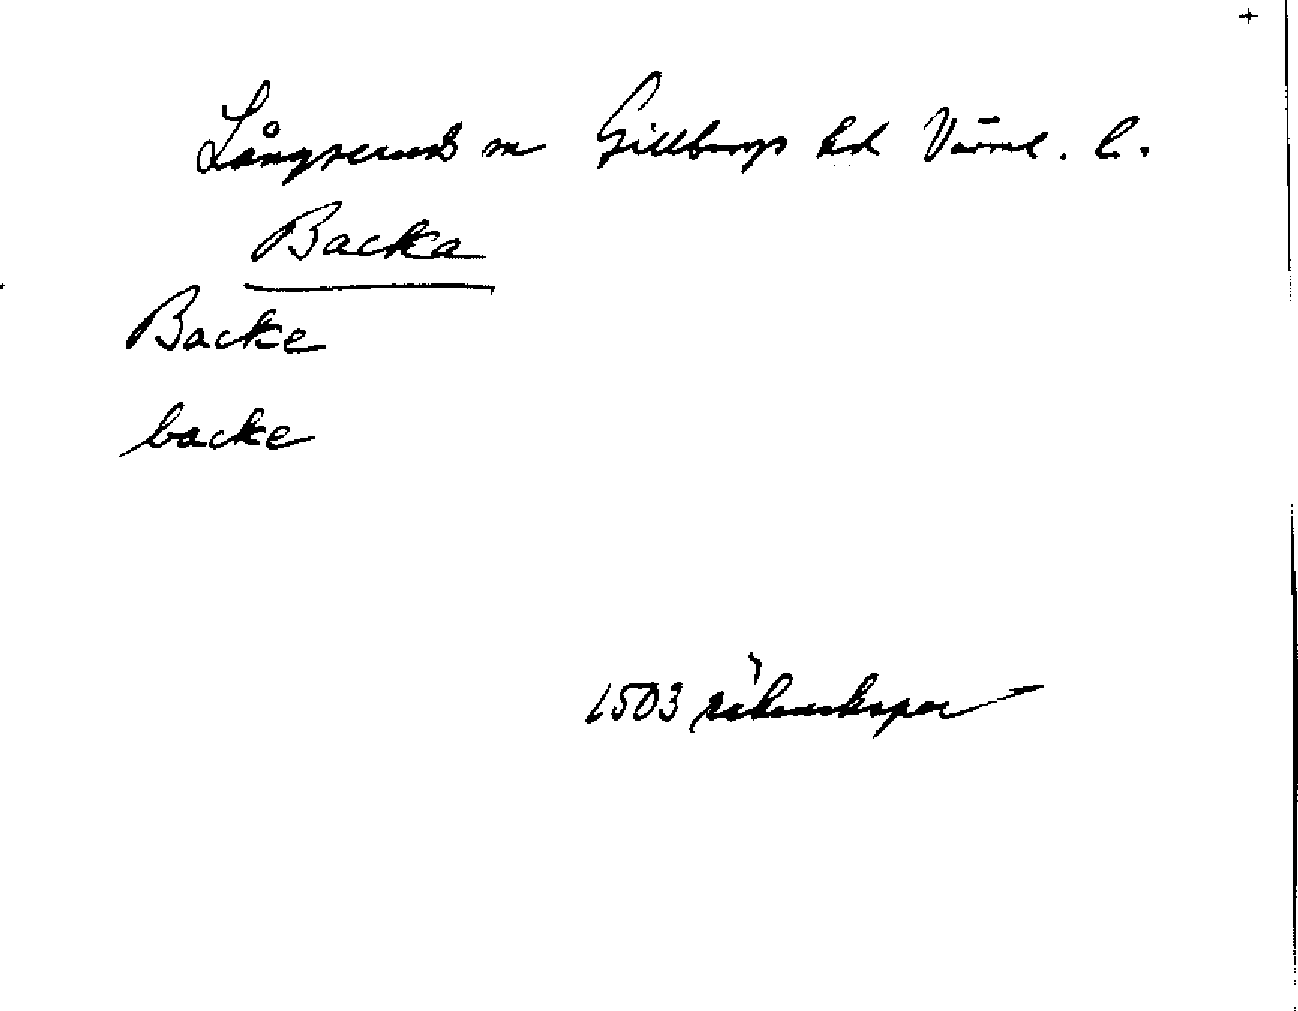 Långseruds sn Gillbergs hd Värml. l.
Backa
Backe
backe
1503 räkenskaper